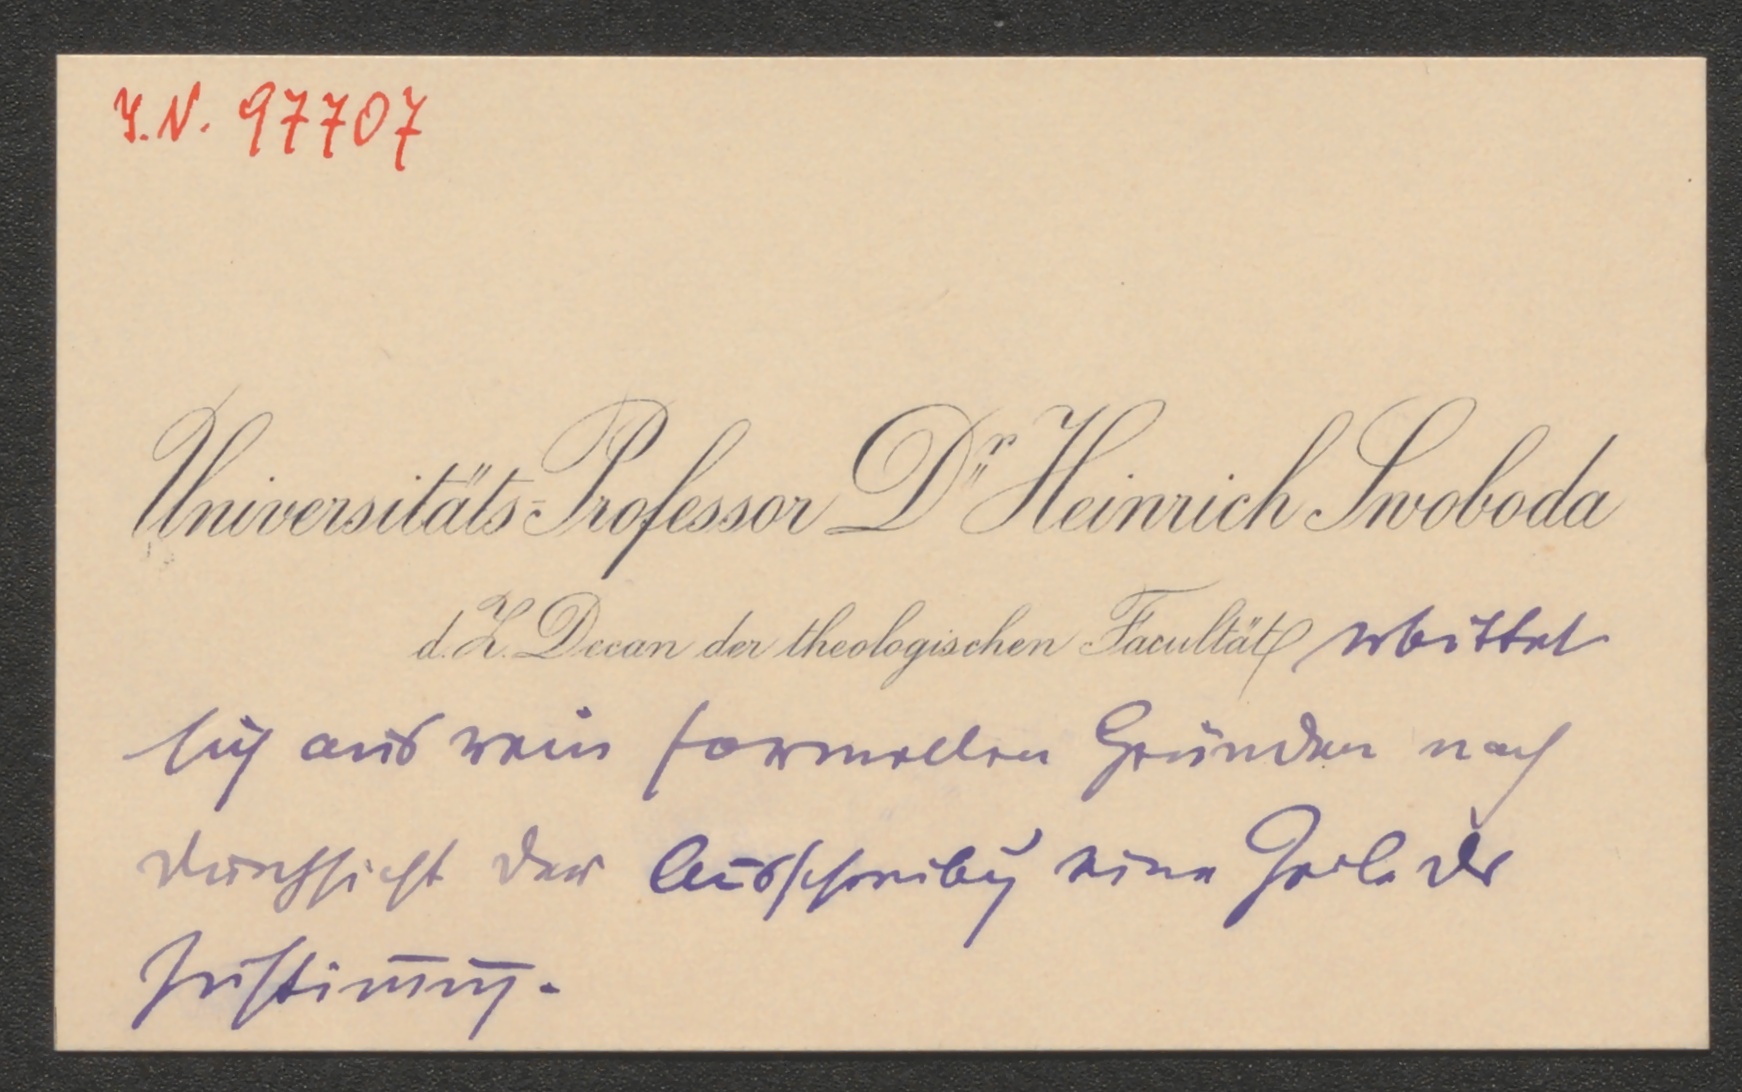 I.N. 97707
Universitäts-Professor Dr. Heinrich Swoboda
d. Z. Decan der theologischen Facultät erbittet
sich aus rein formellen Gründen nach
Durchsicht der Ausschreibg eine Zeile der
Zustim̅ung.